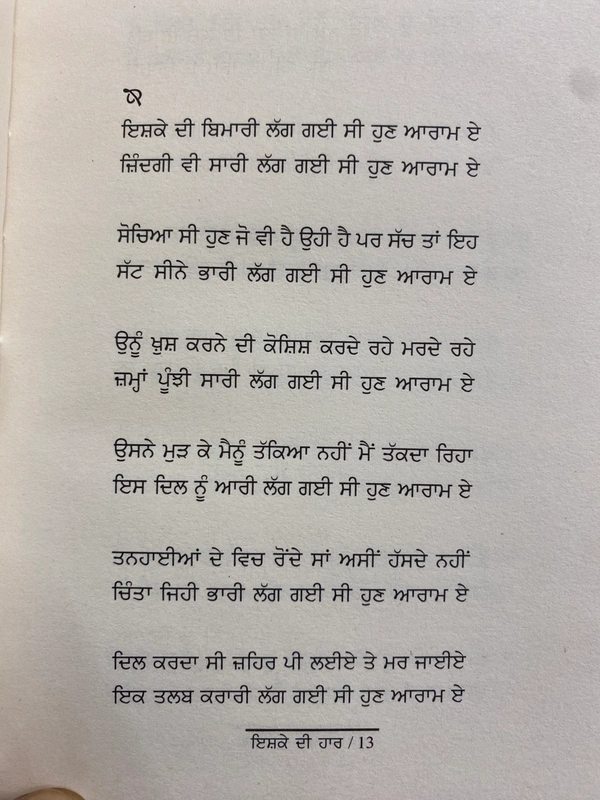 ਇਸ਼ਕੇ ਦੀ ਬਿਮਾਰੀ ਲੱਗ ਗਈ ਸੀ ਹੁਣ ਆਰਾਮ ਏ
ਜ਼ਿੰਦਗੀ ਵੀ ਸਾਰੀ ਲੱਗ ਗਈ ਸੀ ਹੁਣ ਆਰਾਮ ਏ
ਸੋਚਿਆ ਸੀ ਹੁਣ ਜੋ ਵੀ ਹੈ ਉਹੀ ਹੈ ਪਰ ਸੱਚ ਤਾਂ ਇਹ
ਸੱਟ ਸੀਨੇ ਭਾਰੀ ਲੱਗ ਗਈ ਸੀ ਹੁਣ ਆਰਾਮ ਏ
ਉਨੂੰ ਖ਼ੁਸ਼ ਕਰਨੇ ਦੀ ਕੋਸ਼ਿਸ਼ ਕਰਦੇ ਰਹੇ ਮਰਦੇ ਰਹੇ
ਜ਼ਮ੍ਹਾਂ ਪੂੰਝੀ ਸਾਰੀ ਲੱਗ ਗਈ ਸੀ ਹੁਣ ਆਰਾਮ ਏ
ਉਸਨੇ ਮੁੜ ਕੇ ਮੈਨੂੰ ਤੱਕਿਆ ਨਹੀਂ ਮੈਂ ਤੱਕਦਾ ਰਿਹਾ
ਇਸ ਦਿਲ ਨੂੰ ਆਰੀ ਲੱਗ ਗਈ ਸੀ ਹੁਣ ਆਰਾਮ ਏ
ਤਨਹਾਈਆਂ ਦੇ ਵਿਚ ਰੋਂਦੇ ਸਾਂ ਅਸੀਂ ਹੱਸਦੇ ਨਹੀਂ
ਚਿੰਤਾ ਜਿਹੀ ਭਾਰੀ ਲੱਗ ਗਈ ਸੀ ਹੁਣ ਆਰਾਮ ਏ
ਦਿਲ ਕਰਦਾ ਸੀ ਜ਼ਹਿਰ ਪੀ ਲਈਏ ਤੇ ਮਰ ਜਾਈਏ
ਇਕ ਤਲਬ ਕਰਾਰੀ ਲੱਗ ਗਈ ਸੀ ਹੁਣ ਆਰਾਮ ਏ
ਇਸ਼ਕੇ ਦੀ ਹਾਰ / 13